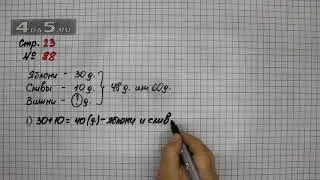 4DA5.RU
Стр. 23
№ 88
Яблони - 30 д.
Сливы - 10 д. } 48 д. или 60 д.
Вишни - ? д.
1) 30+10=40 (д) - яблони и слив